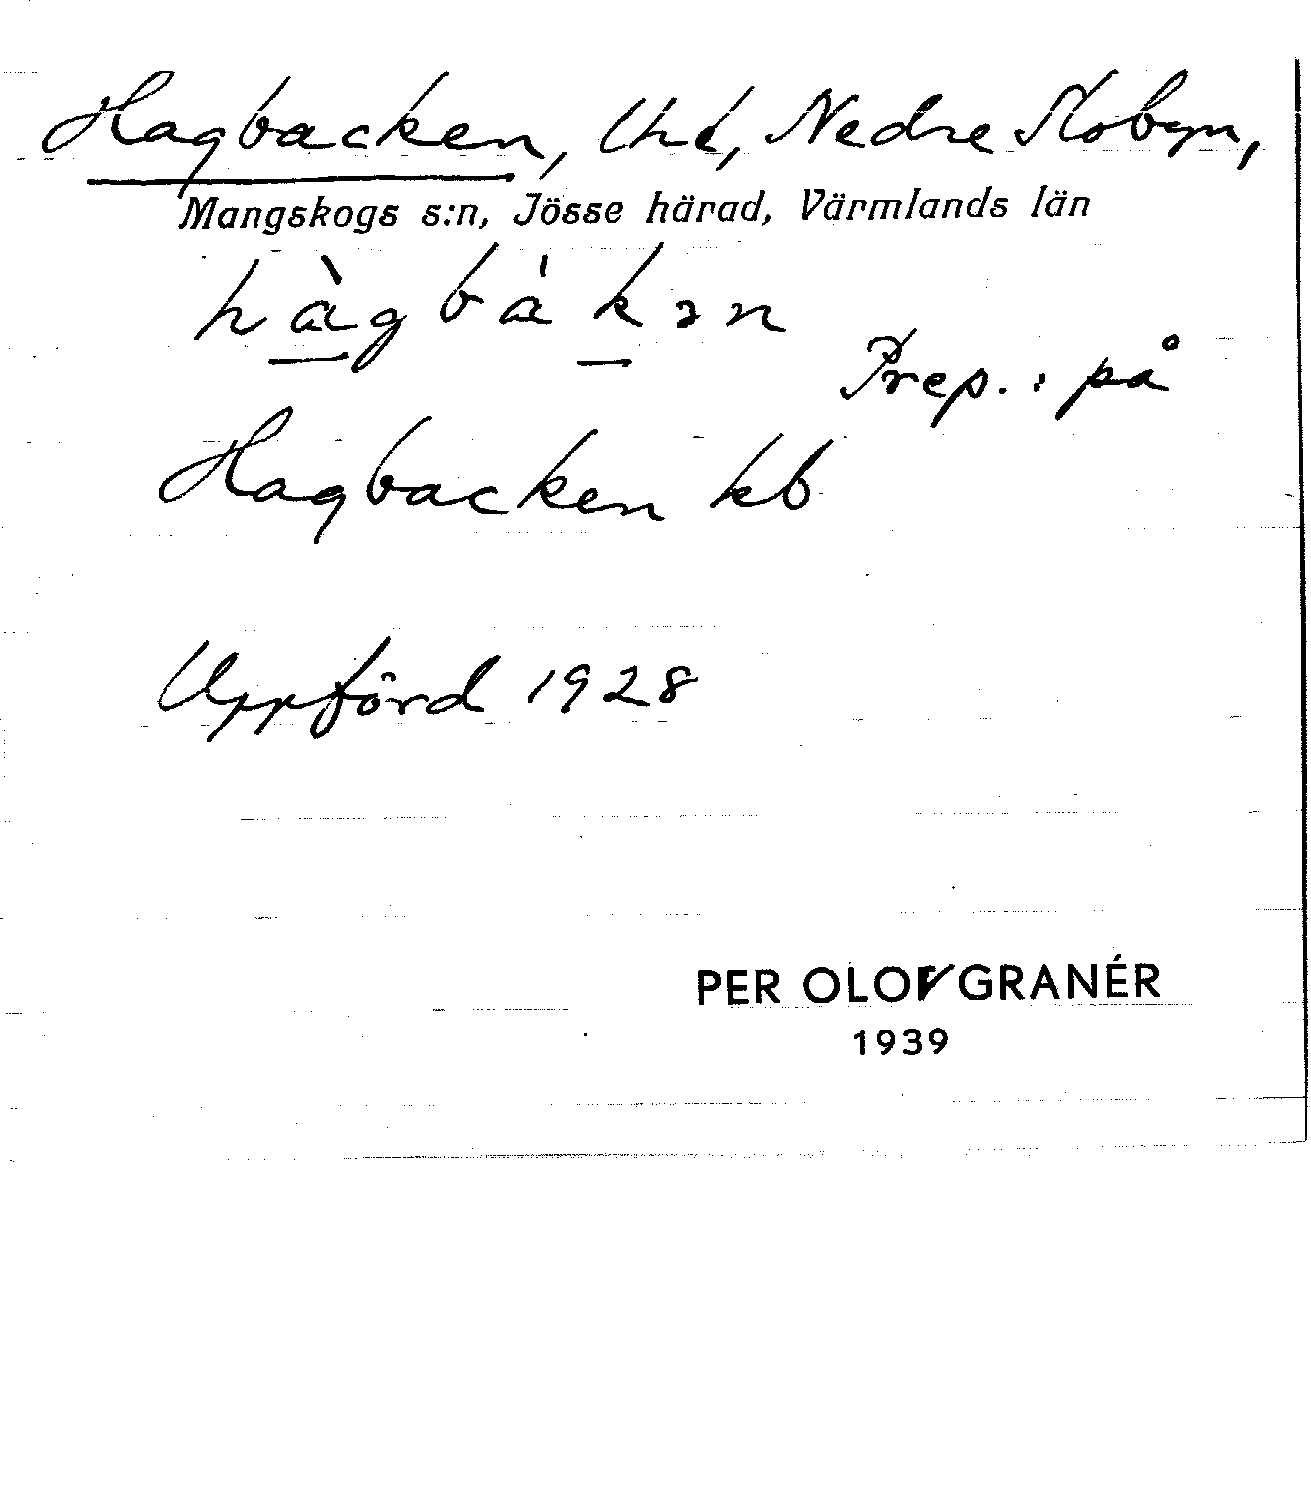 Hagbacken, lht, Nedre Slobyn,
Mangskogs s:n, Jösse härad, Värmlands län
hàgbákɜn
Prep.: på
Hagbacken kb
Uppförd 1928
PER OLOV GRANÉR
1939